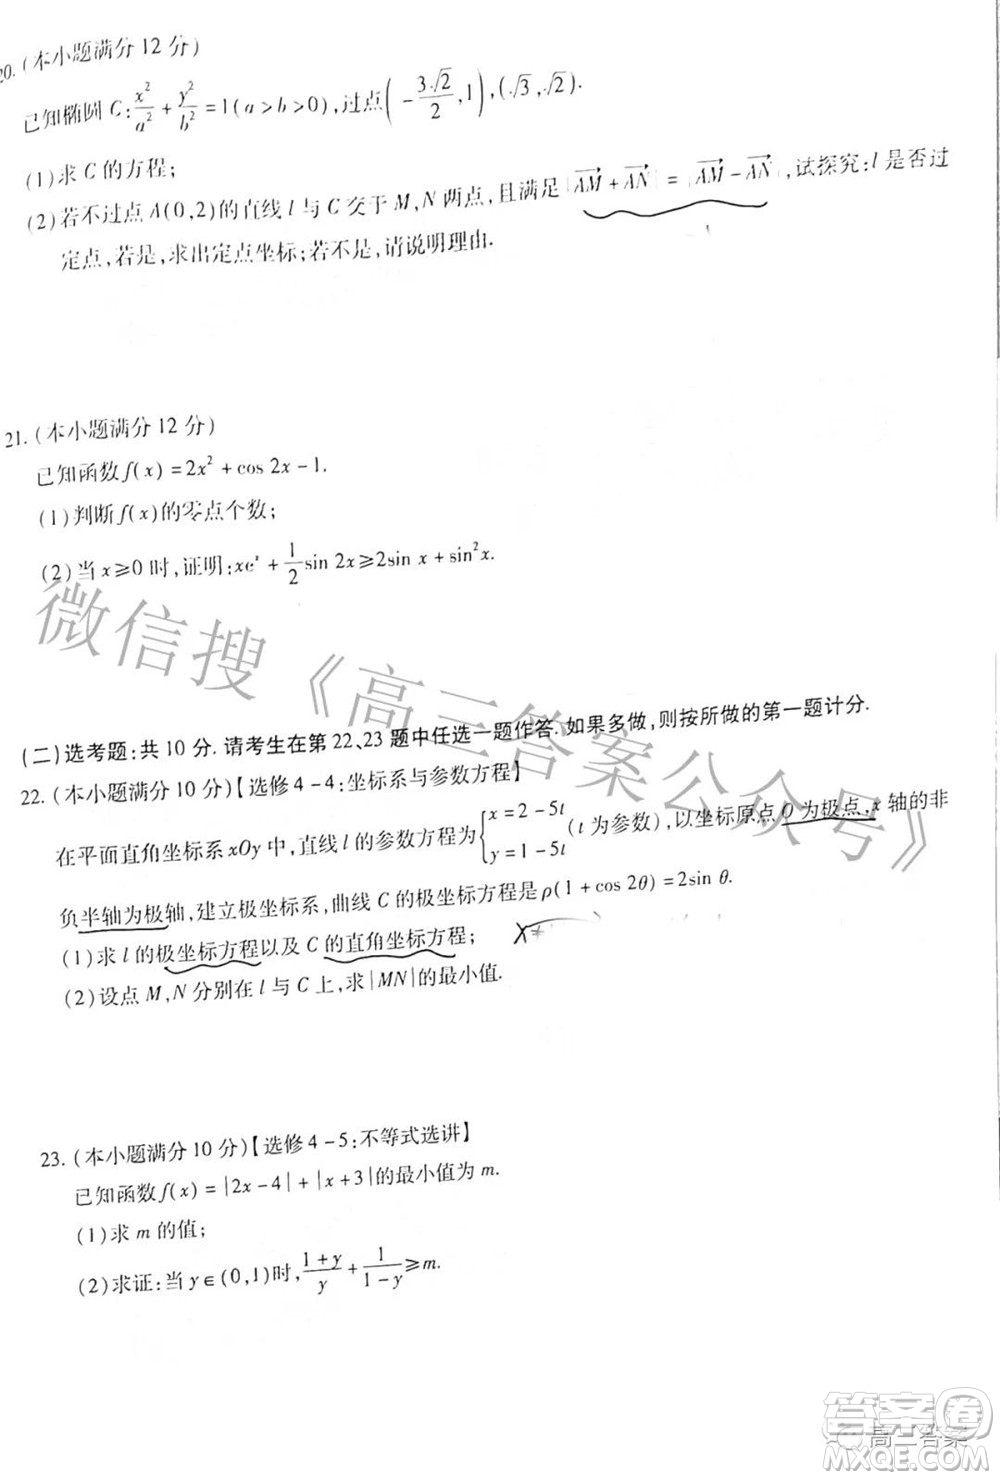 20. (本小题满分 12 分)
已知椭圆 C: x²/a² + y²/b² = 1(a>b>0), 过点(-3√2/2, 1), (√3, √2).
(1)求 C 的方程;
(2)若不过点 A(0,2)的直线 l 与 C 交于 M, N 两点, 且满足 |AM+AN| = |AM-AN|, 试探究: l 是否过
定点, 若是, 求出定点坐标; 若不是, 请说明理由.
21. (本小题满分 12 分)
已知函数 f(x) = 2x² + cos 2x - 1.
(1)判断 f(x)的零点个数;
(2)当 x≥0 时, 证明: xeˣ + 1/2 sin 2x ≥ 2sin x + sin² x.
微信搜《高三答案公众号》
(二)选考题: 共 10 分. 请考生在第 22、23 题中任选一题作答. 如果多做, 则按所做的第一题计分.
22. (本小题满分 10 分)【选修 4-4: 坐标系与参数方程】
在平面直角坐标系 xOy 中, 直线 l 的参数方程为 { x = 2 - 5t y = 1 - 5t (t 为参数), 以坐标原点 O 为极点, x 轴的非
负半轴为极轴, 建立极坐标系, 曲线 C 的极坐标方程是 ρ(1 + cos 2θ) = 2sin θ.
(1)求 l 的极坐标方程以及 C 的直角坐标方程;
(2)设点 M, N 分别在 l 与 C 上, 求 |MN| 的最小值.
23. (本小题满分 10 分)【选修 4-5: 不等式选讲】
已知函数 f(x) = |2x-4| + |x+3| 的最小值为 m.
(1)求 m 的值;
(2)求证: 当 y∈(0,1)时, (1+y)/y + 1/(1-y) ≥ m.
答案卷
高三答案
MXQE.COM